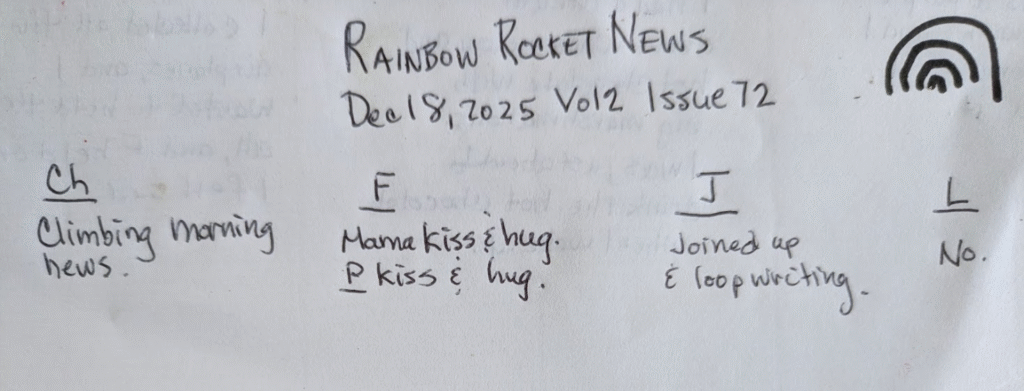 RAINBOW ROCKET NEWS
Dec 18, 2025 Vol 2 Issue 72
Ch
Climbing morning
news.
F
Mama kiss & hug.
P kiss & hug.
J
Joined up
& loop writing.
L
No.